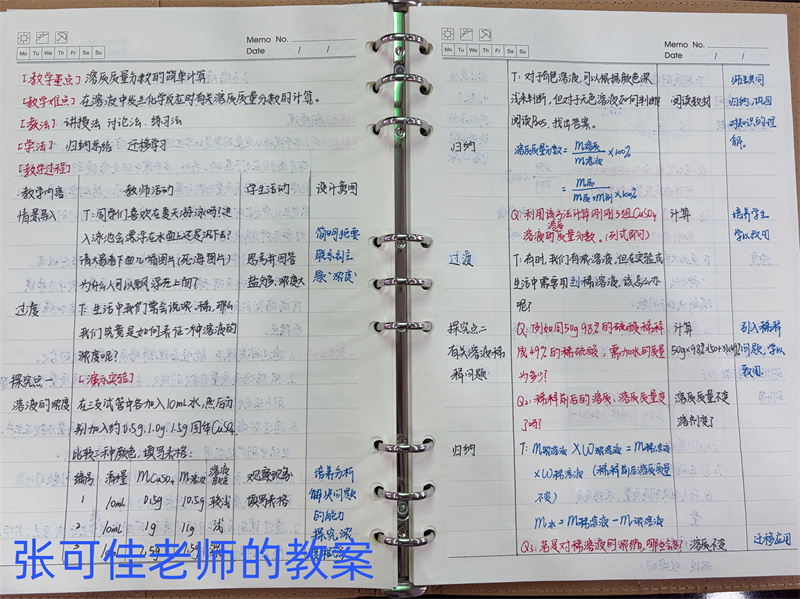 Memo No.
Mo Tu We Th Fr Sa Su
Date / /
[教学重点] 溶质质量分数的简单计算
[教学难点] 在溶液中发生化学反应时有关溶质质量分数的计算。
[教法] 讲授法 讨论法 练习法
[学法] 归纳总结 迁移学习
[教学过程]
教学内容 教师活动 学生活动 设计意图
情景导入 T:同学们喜欢在夏天游泳吗?进
入泳池会漂浮在水面上还是沉下去?
请大家看下面几幅图片(死海图片)
为什么人可以飘浮在上面?
思考并回答
盐分多,浓度大
简明扼要
联系到主
题“浓度”
过渡 T:生活中我们常会说浓、稀,那么
我们究竟是如何表征一种溶液的
浓度呢?
探究点一 [演示实验]
溶液的浓度 在三支试管中各加入10ml水,然后分
别加入约0.5g、1.0g、1.5g固体CuSO₄
比较三种颜色,填写表格:
编号 溶剂量 mCuSO₄ m溶液 溶液颜色 观察现象
1 10ml 0.5g 10.5g 较浅 填写表格
2 10ml 1g 11g 浅
培养分析
解决问题
的能力
探究浓
张可佳老师的教案
Memo No.
Mo Tu We Th Fr Sa Su
Date / /
T:对于有色溶液,可以根据颜色深
浅来判断,但对于无色溶液如何判断呢
阅读教材
师生共同
归纳,巩固
对知识的理
解。
归纳
溶质质量分数=m溶质/m溶液×100%
=m质/m质+m剂×100%
Q:利用该方法计算刚刚3组CuSO₄
溶液的溶质质量分数。(列式即可)
计算
培养学生
学以致用
过渡 T:有时,我们有浓溶液,但在实验或
生活中需要用到稀溶液,该怎么办
呢?
探究点二 Q₁:例如用50g 98%的硫酸稀释
有关溶液稀 成49%的稀硫酸,需加水的质量
释问题 为多少?
计算
引入稀释
问题,学以
致用
Q₂:稀释前后的溶质、溶质质量变
了吗?
溶质质量不变
溶剂变了
归纳 T:m浓溶液×W浓溶液=m稀溶液
×W稀溶液 (稀释前后溶质质量
不变)
m水=m稀溶液-m浓溶液
溶质不变
迁移应用